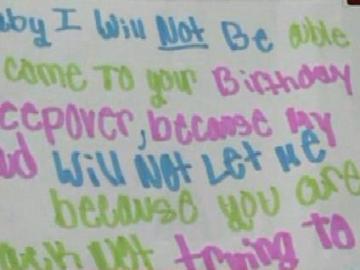 by I Will Not Be able
come To your Birthday
eepover, because My
d Will Not Let Me
because you are
ack Not trying to